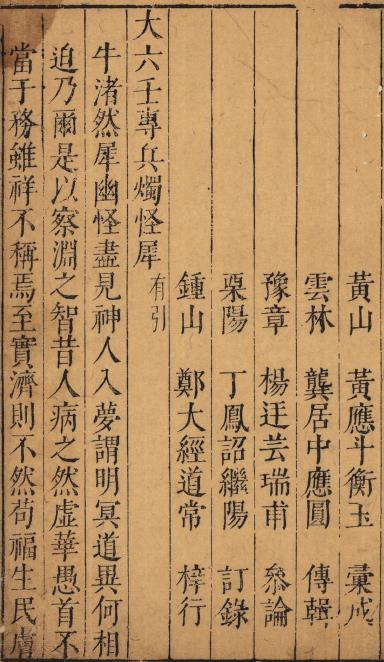 黃山 黃應斗衡玉 彙成
雲林 龔居中應圓 傳輯
豫章 楊廷芸瑞甫 叅論
栗陽 丁鳳詔繼陽 訂錄
鍾山 鄭大經道常 梓行
大六壬專兵燭怪犀 有引
牛渚然犀幽怪盡見神人入夢謂明冥道異何相
迫乃爾是以察淵之智昔人病之然虛華愚首不
當于務雖祥不稱焉至實濟則不然苟福生民膚